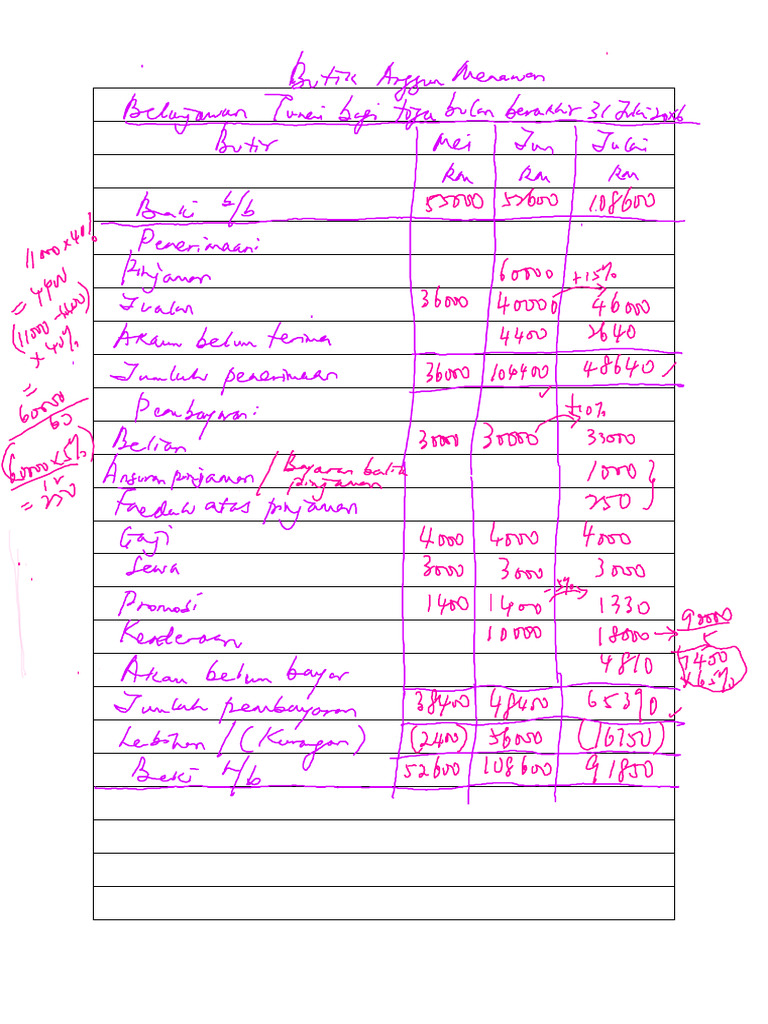 Butik Anggun Menawan
Belanjawan Tunai bagi tiga bulan berakhir 31 Julai 2016
Butir Mei Jun Julai
RM RM RM
Baki b/b 55000 52600 108600
Penerimaan:
Pinjaman 60000 +15%
Jualan 36000 40000 46000
Akaun belum terima 4400 2640
Jumlah penerimaan 36000 104400 48640
Pembayaran: +10%
Belian 30000 30000 33000
Ansuran pinjaman / Bayaran balik pinjaman 1000
Faedah atas pinjaman 250
Gaji 4000 4000 4000
Sewa 3000 3000 3000
Promosi 1400 1400 -5% 1330
Kenderaan 10000 18000 → 90000
5
Akaun belum bayar 4810 7400
× 65%
Jumlah pembayaran 38400 48400 65390
Lebihan / (Kurangan) (2400) 56000 (16750)
Baki h/b 52600 108600 91850
11000 × 40%
= 4400
(11000 - 4400)
× 40%
=
60000
60
60000 × 5%
12
= 250